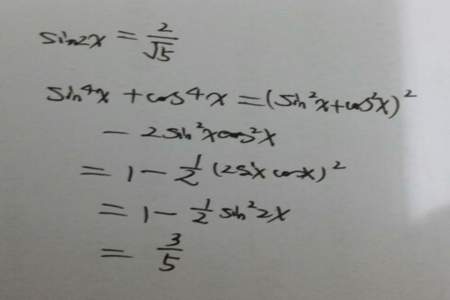 sin2x = 2/√5
sin⁴x + cos⁴x = (sin²x+cos²x)²
- 2sin²xcos²x
= 1 - 1/2 (2six cosx)²
= 1 - 1/2 sin²2x
= 3/5